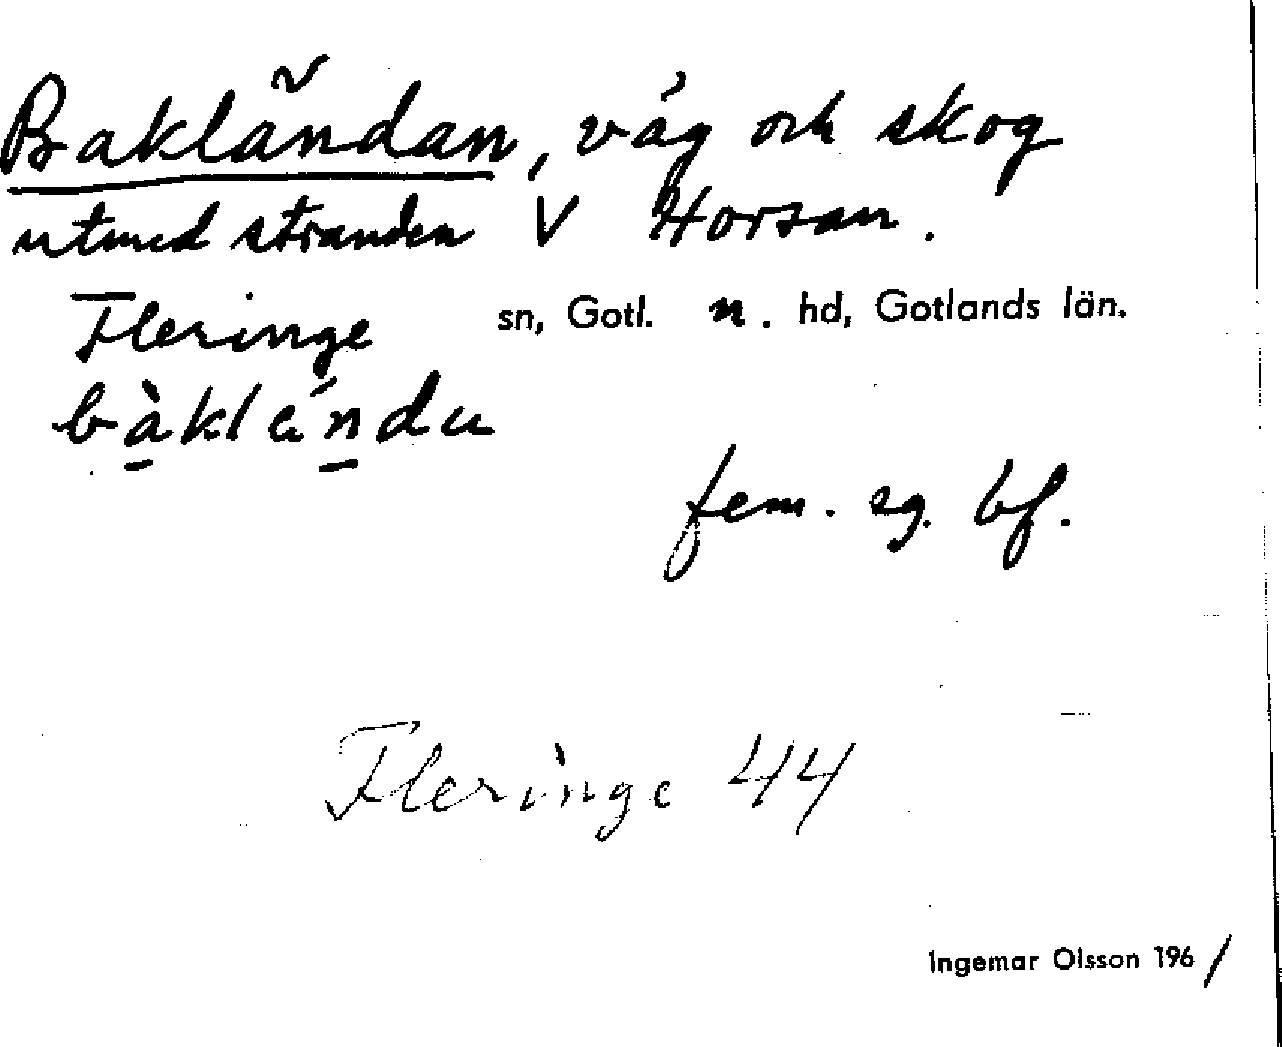 Bakländan, väg och skog
utmed stranden V Horsan.
Fleringe sn, Gotl. n. hd, Gotlands län.
bàklándu
fem. sg. bf.
Fleringe 44
Ingemar Olsson 1961